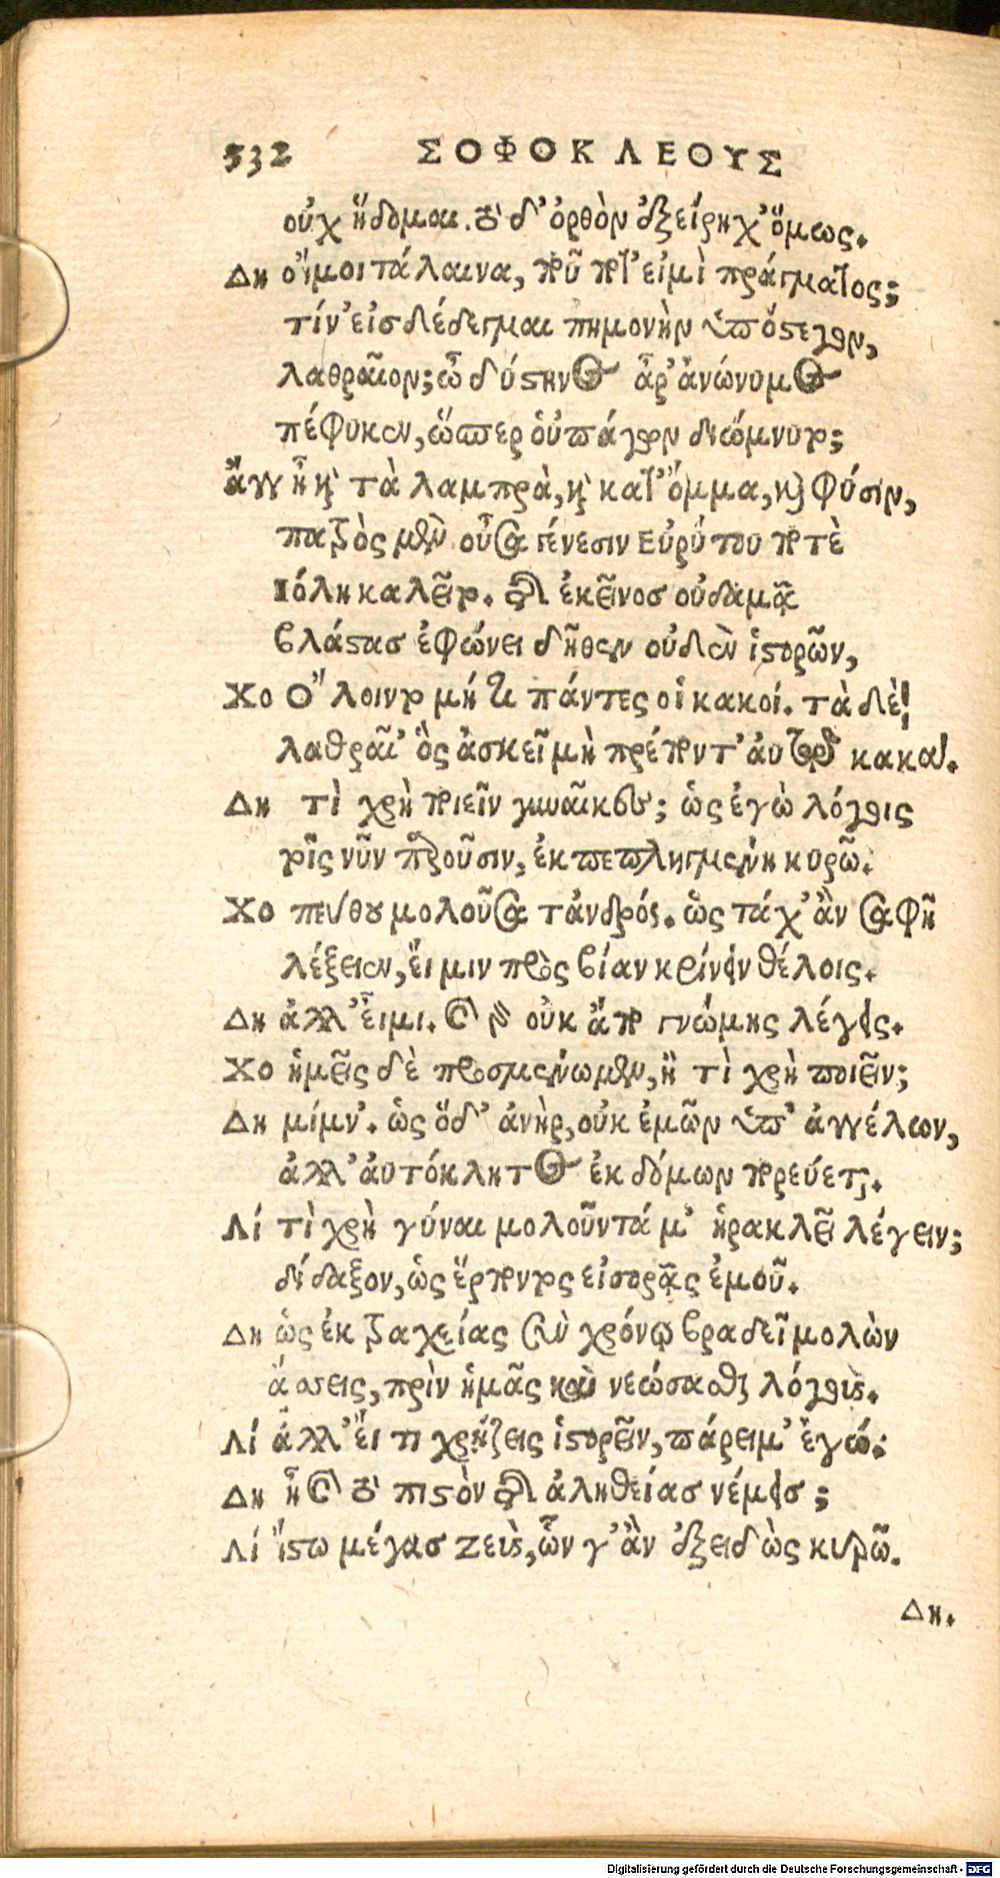 532 ΣΟΦΟΚΛΕΟΥΣ
οὐχ ἥδομαι. τὸ δ' ὀρθὸν ἐξείρηχ' ὅμως.
Δη οἴμοι τάλαινα, ποῦ ποτ' εἰμὶ πράγματος;
τίν' εἰσδέδεγμαι πημονὴν ὑπόστεγον,
λαθραῖον; ὦ δύστηνος ἆρ' ἀνώνυμος
πέφυκεν, ὥσπερ οὑπάγων διώμνυτο;
ἄγγ ἦ καὶ τὰ λαμπρὰ, καὶ κατ' ὄμμα, καὶ φύσιν,
πατρὸς μὲν οὖσα γένεσιν Εὐρύτου ποτὲ
Ιόλη καλεῖτο. τῆς ἐκεῖνοσ οὐδαμᾷ
βλάστασ ἐφώνει δῆθεν οὐδὲν ἱστορῶν,
Χο Ὄλοιντο μή τι πάντες οἱ κακοί. τὰ δὲ
λαθραῖ' ὃς ἀσκεῖ μὴ πρέποντ' ἀυτῷ κακά.
Δη τὶ χρὴ ποιεῖν γυναῖκες; ὡς ἐγὼ λόγοις
τοῖς νῦν παροῦσιν, ἐκπεπληγμένη κυρῶ.
Χο πεύθου μολοῦσα τἀνδρός. ὡς τάχ' ἂν σαφῆ
λέξειεν, ἔι μιν πρὸς βίαν κρίνειν θέλοις.
Δη ἀλλ' εἶμι. καὶ γὰρ οὐκ ἄπο γνώμης λέγεις.
Χο ἡμεῖς δὲ προσμένωμεν, ἢ τὶ χρὴ ποιεῖν;
Δη μίμν'. ὡς ὅδ' ἀνὴρ, οὐκ ἐμῶν ὑπ' ἀγγέλων,
ἀλλ' ἀυτόκλητος ἐκ δόμων πορεύεται.
Λί τὶ χρὴ γύναι μολοῦντά μ' ἡρακλεῖ λέγειν;
δίδαξον, ὡς ἕρποντος εἰσορᾷς ἐμοῦ.
Δη ὡς ἐκ ταχείας σὺν χρόνῳ βραδεῖ μολὼν
ἄσσεις, πρὶν ἡμᾶς καὶ νεώσασθαι λόγους.
Λί ἀλλ' ἔι τι χρῄζεις ἱστορεῖν, πάρειμ' ἐγώ.
Δη ἦ καὶ τὸ πιστὸν τῆς ἀληθείασ νέμεισ;
Λί ἴστω μέγασ Ζεὺς, ὧν γ' ἂν ἐξειδὼς κυρῶ.
Δη.
Digitalisierung gefördert durch die Deutsche Forschungsgemeinschaft - DFG